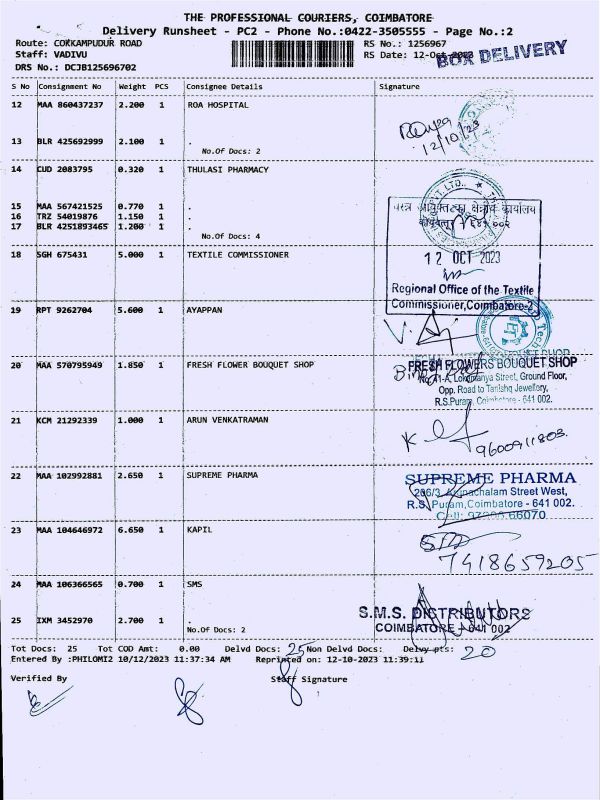 THE PROFESSIONAL COURIERS, COIMBATORE
Delivery Runsheet - PC2 - Phone No.:0422-3505555 - Page No.:2
Route: COKKAMPUDUR ROAD RS No.: 1256967
Staff: VADIVU RS Date: 12-Oct-2023 BOX DELIVERY
DRS No.: DCJB125696702
S No Consignment No Weight PCS Consignee Details Signature
12 MAA 860437237 2.200 1 ROA HOSPITAL
12/10/23
13 BLR 425692999 2.100 1 .
No.Of Docs: 2
14 CUD 2083795 0.320 1 THULASI PHARMACY
15 MAA 567421525 0.770 1 .
16 TRZ 54019876 1.150 1 .
17 BLR 4251893465 1.200 1 .
No.Of Docs: 4
वस्त्र आयुक्त का क्षेत्रीय कार्यालय
६४१ ००२
18 SGH 675431 5.000 1 TEXTILE COMMISSIONER
12 OCT 2023
Regional Office of the Textile
Commissioner, Coimbatore-2
19 RPT 9262704 5.600 1 AYAPPAN
20 MAA 570795949 1.850 1 FRESH FLOWER BOUQUET SHOP
FRESH FLOWERS BOUQUET SHOP
No.41-A, Lokmanya Street, Ground Floor,
Opp. Road to Tanishq Jewellery,
R.S.Puram, Coimbatore - 641 002.
21 KCM 21292339 1.000 1 ARUN VENKATRAMAN
22 MAA 102992881 2.650 1 SUPREME PHARMA
SUPREME PHARMA
206/3, Arunachalam Street West,
R.S. Puram, Coimbatore - 641 002.
23 MAA 104646972 6.650 1 KAPIL
7418659205
24 MAA 106366565 0.700 1 SMS
S.M.S. DISTRIBUTORS
COIMBATORE - 641 002
25 IXM 3452970 2.700 1 .
No.Of Docs: 2
Tot Docs: 25 Tot COD Amt: 0.00 Delvd Docs: 25 Non Delvd Docs: Delvy pts: 20
Entered By :PHILOMI2 10/12/2023 11:37:34 AM Reprinted on: 12-10-2023 11:39:11
Verified By Staff Signature